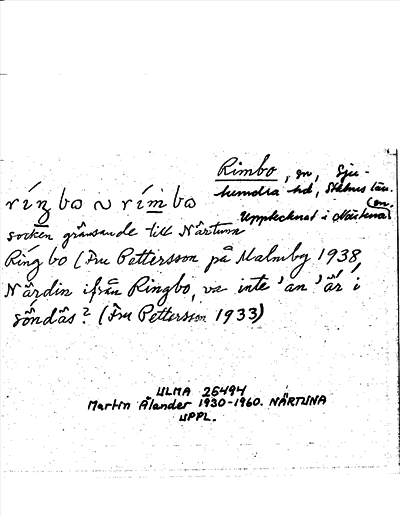 Rimbo, sn, Sju-
hundra hd, Sthlms län.
(on.
Upptecknat i Närtuna)
ríŋbo ~ rímbo
socken gränsande till Närtuna
Ríngbo (Fru Pettersson på Malmby 1938,
Nå̄rdin ifrån Ringbo, va inte 'an 'är i
söndås? (Fru Pettersson 1933)
ULMA 25494
Martin Ålander 1930-1960. NÄRTUNA
UPPL.